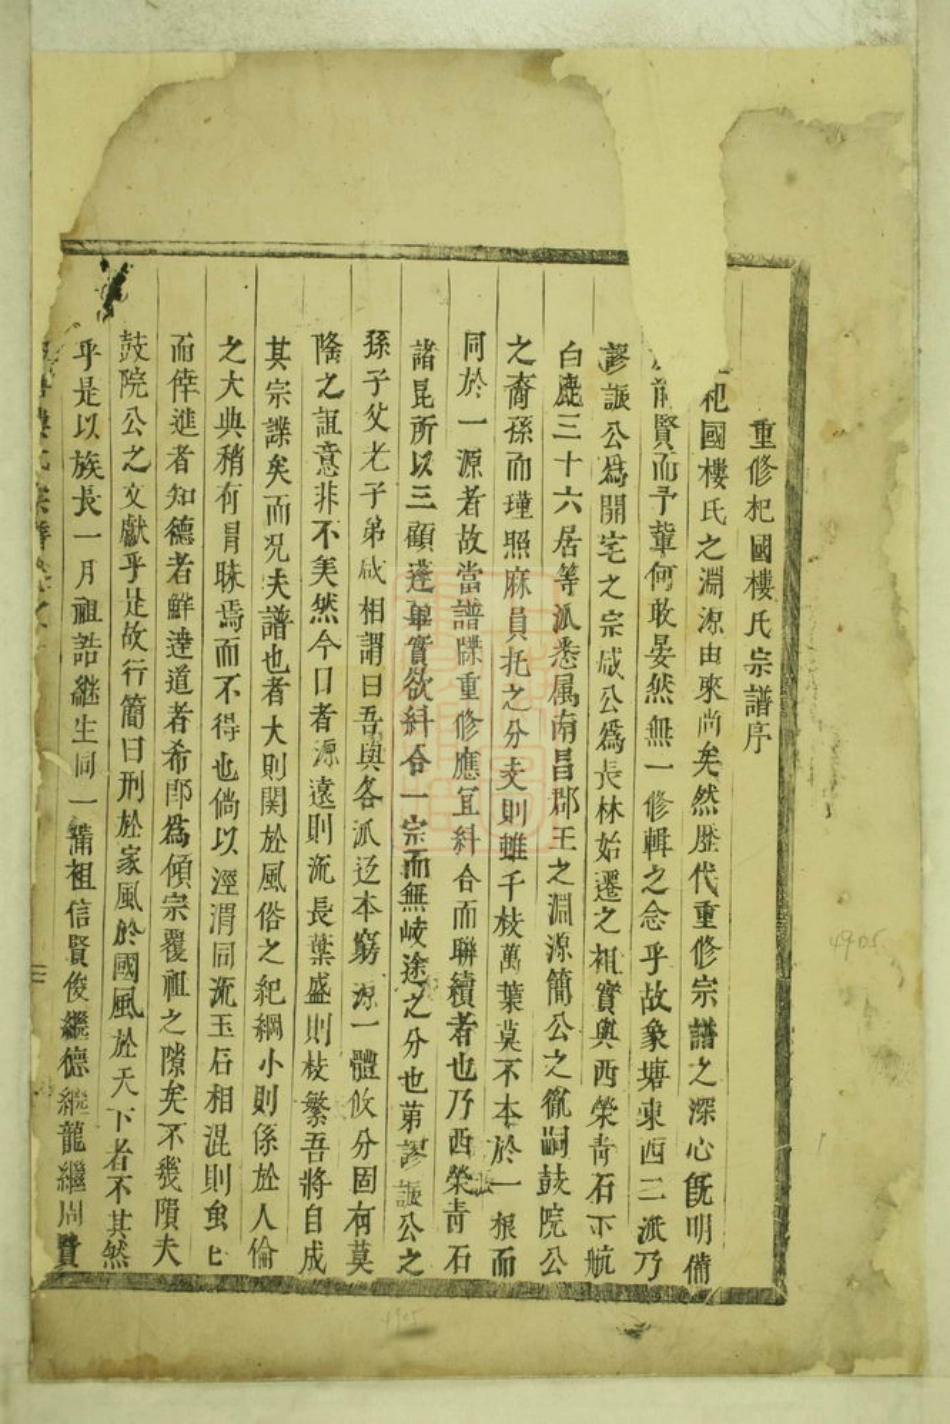 重修杞國樓氏宗譜序
杞國樓氏之淵源由來尚矣然歷代重修宗譜之深心旣明備
賢而予輩何敢晏然無一修輯之念乎故象塘東西二派乃
謬誫公爲開宅之宗咸公爲長林始遷之祖實與西榮靑石下航
白鹿三十六居等派悉属南昌郡王之淵源簡公之㣲嗣鼓院公
之裔孫而瑾照麻員托之分支則雖千枝萬葉莫不本於一根而
同於一源者故當譜牒重修應宜斜合而聯續者也乃西榮靑石
諸昆所以三顧蓬蓽實欲斜合一宗而無岐途之分也第謬誫公之
孫子父老子弟咸相謂曰吾與各派迳本窮源一體攸分固有莫
隆之誼意非不美然今日者源遠則流長葉盛則枝繁吾將自成
其宗譜矣而况夫譜也者大則関於風俗之紀綱小則係於人倫
之大典稍有冐昧焉而不得也倘以涇渭同流玉石相混則魚目
而倖進者知德者鮮達道者希郎爲傾宗覆祖之隙矣不幾隕夫
鼓院公之文獻乎是故行簡曰刑於家風於國風於天下者不其然
乎是以族長一月祖誥継生同一蒲祖信賢俊繼德繼龍繼周賢